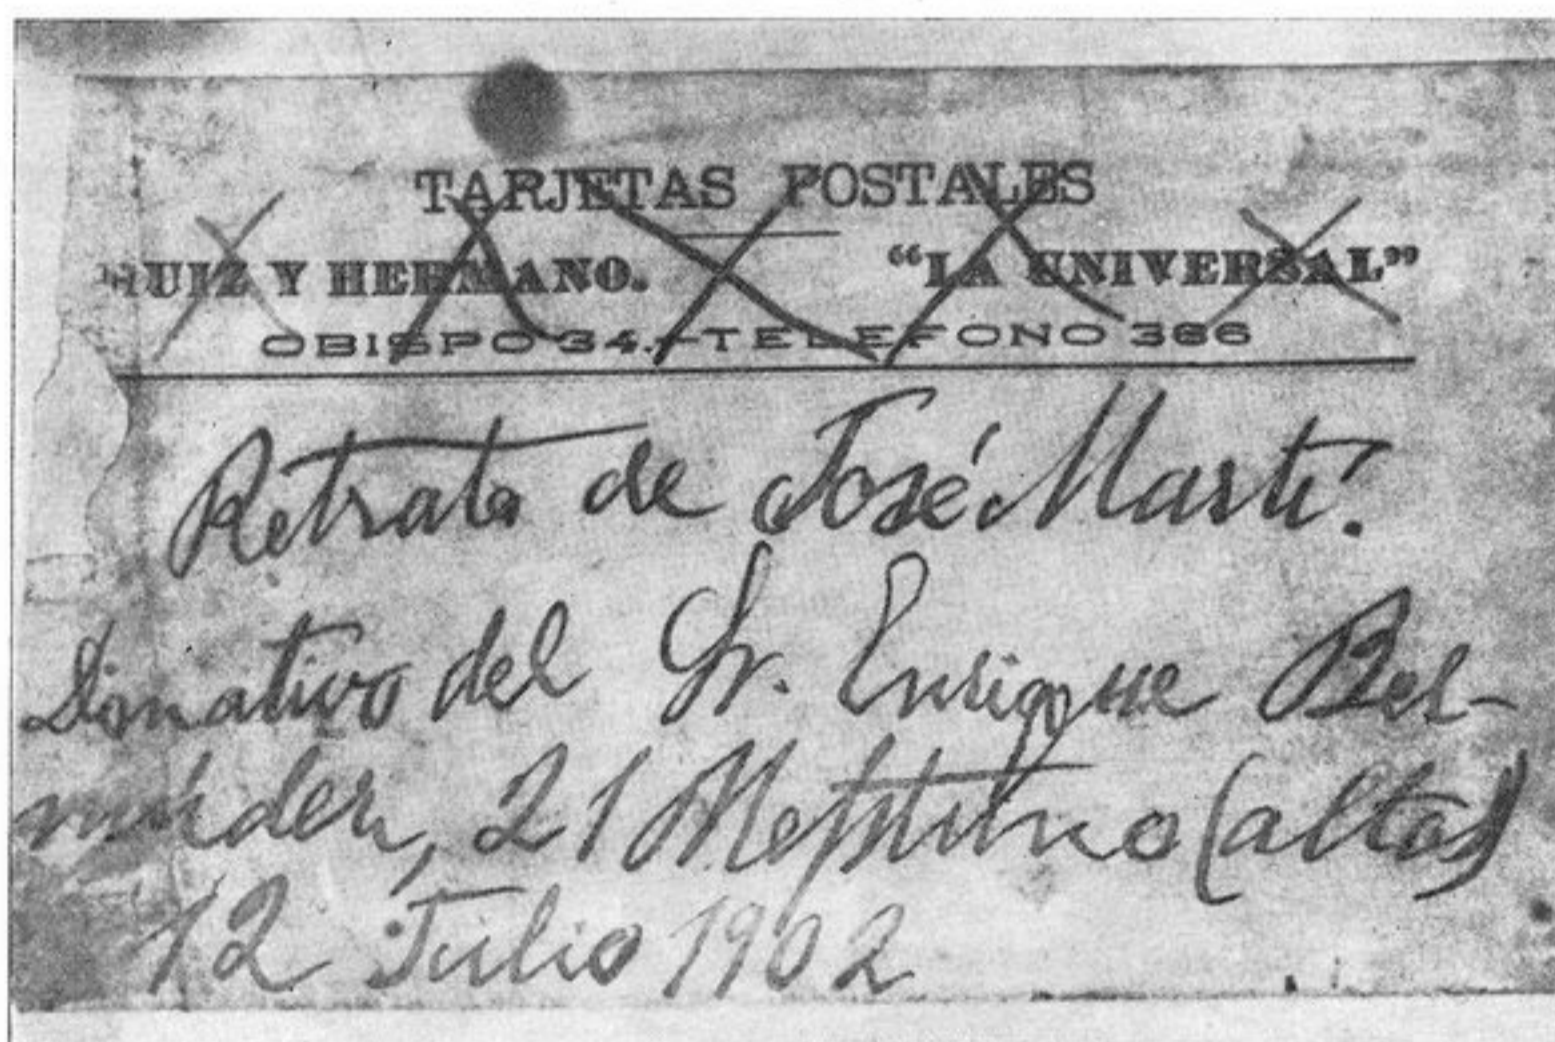 TARJETAS POSTALES
RUIZ Y HERMANO. "LA UNIVERSAL"
OBISPO 34.-TELEFONO 386
Retrato de José Martí.
Donativo del Sr. Enrique Ber-
múdez, 21 Neptuno (altos)
12 Julio 1902